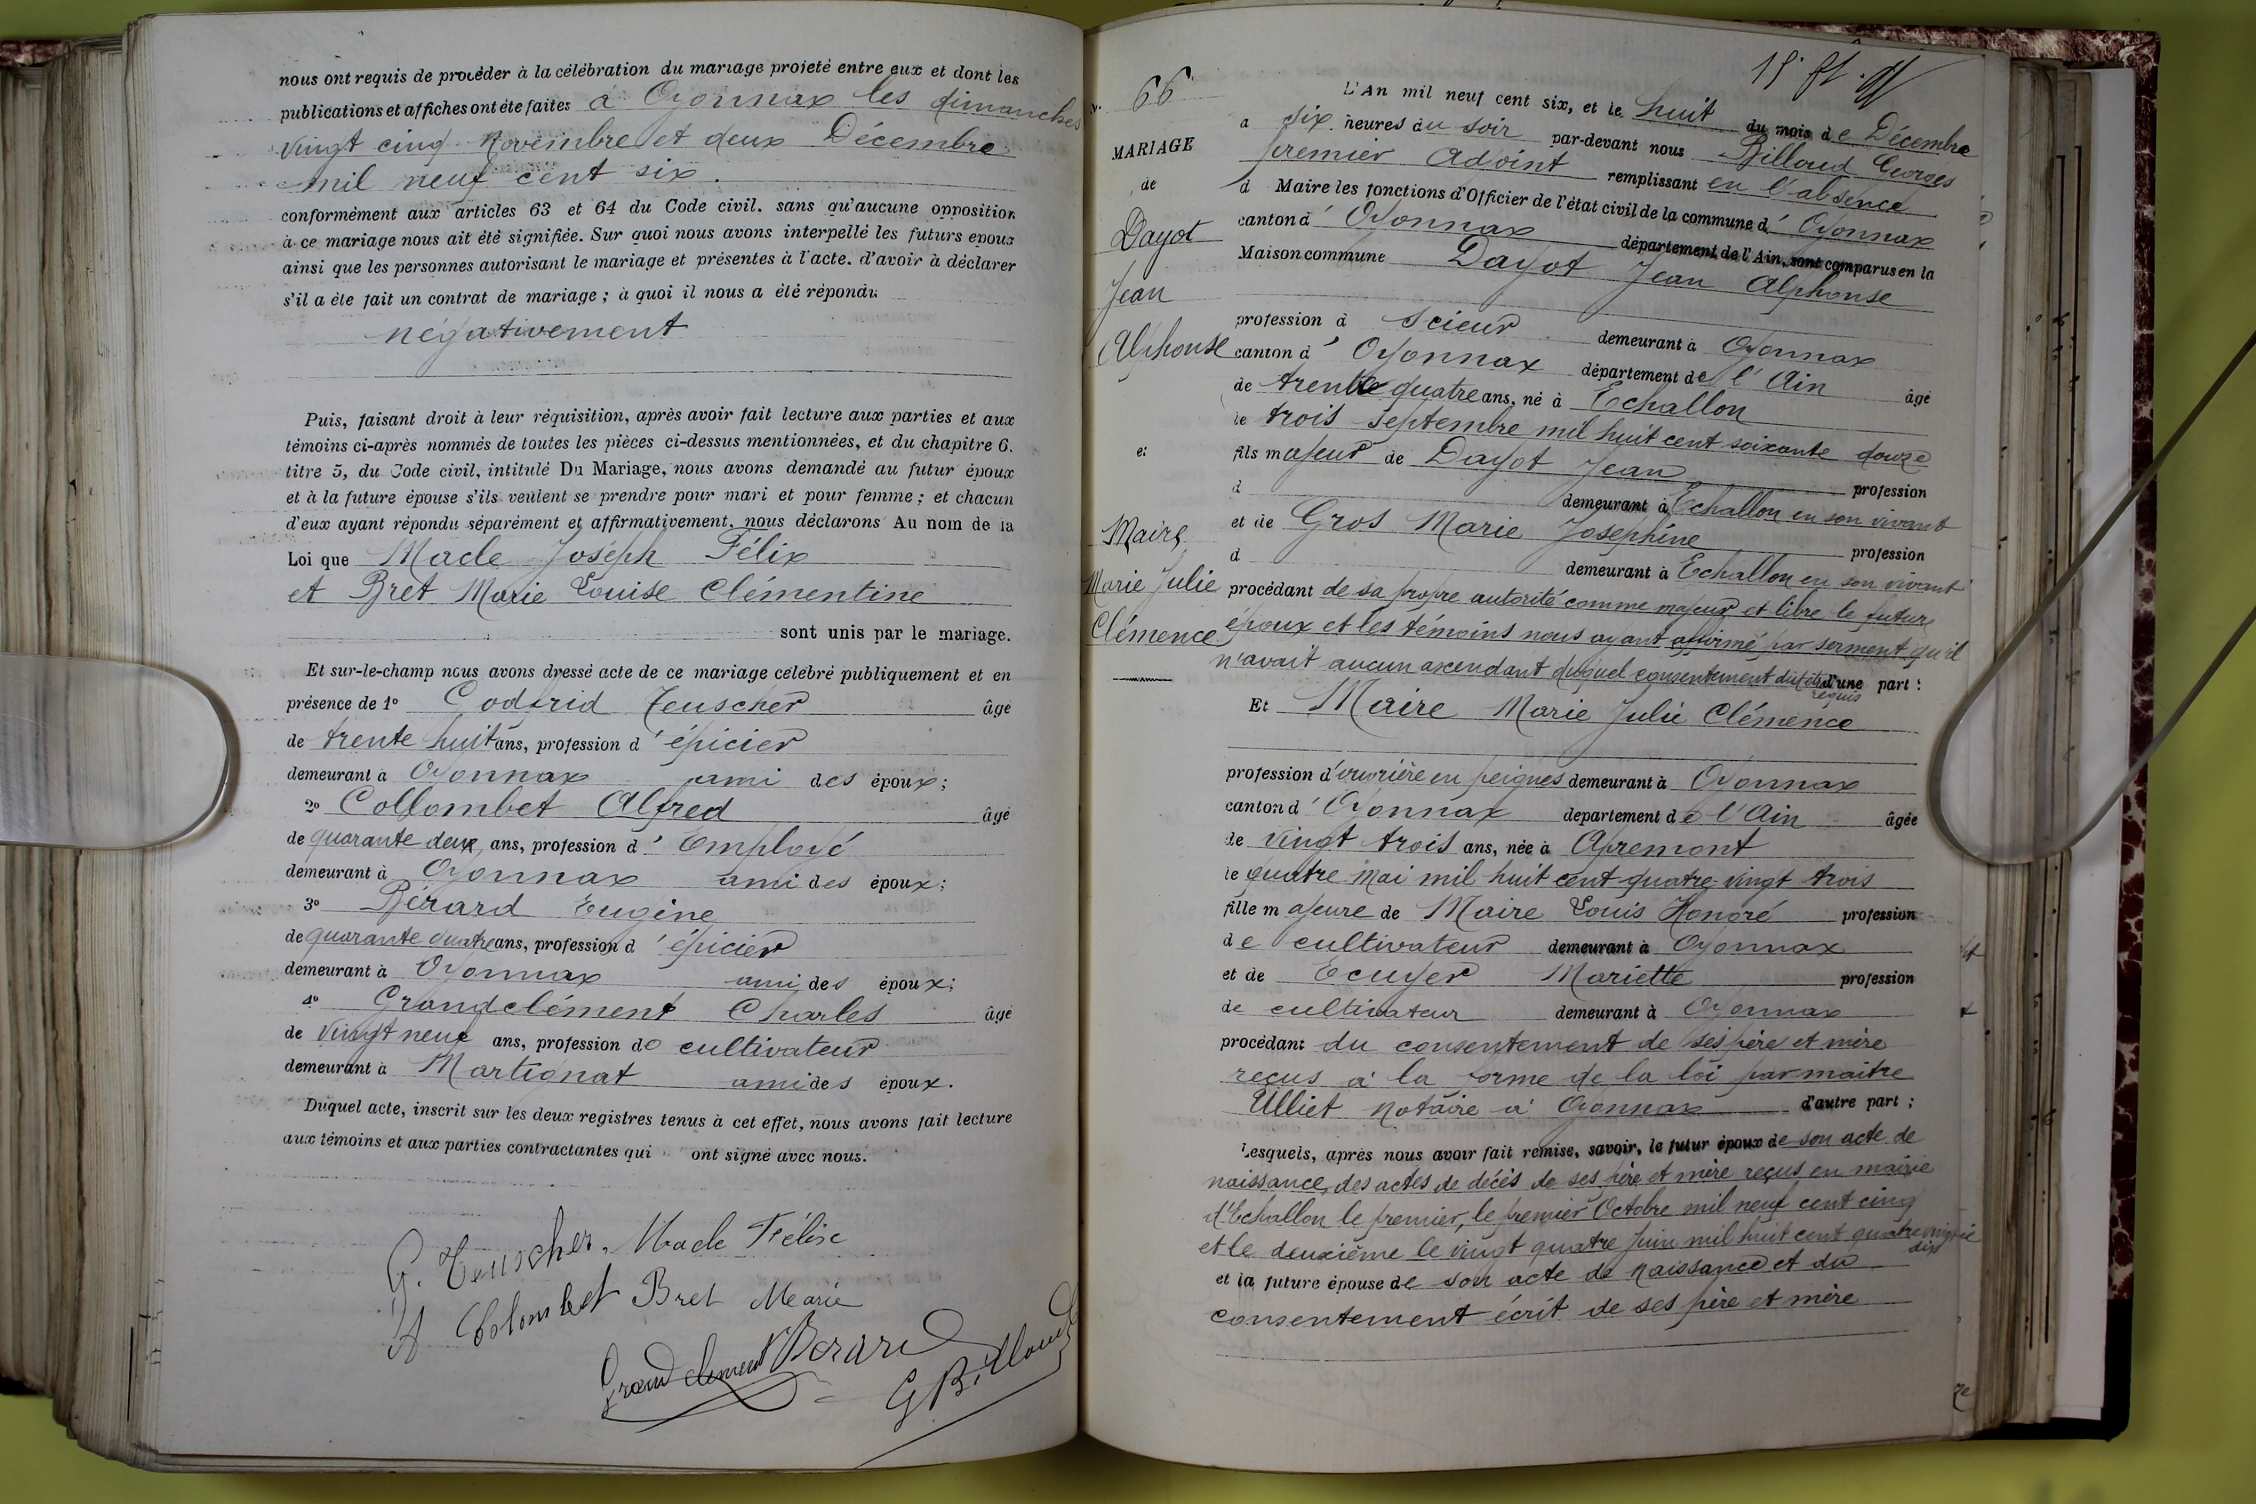 nous ont requis de procéder à la célébration du mariage projeté entre eux et dont les
publications et affiches ont été faites à Oyonnax les dimanches
vingt cinq Novembre et deux Décembre
mil neuf cent six.
conformément aux articles 63 et 64 du Code civil. sans qu'aucune opposition
à ce mariage nous ait été signifiée. Sur quoi nous avons interpellé les futurs époux
ainsi que les personnes autorisant le mariage et présentes à l'acte. d'avoir à déclarer
s'il a été fait un contrat de mariage ; à quoi il nous a été répondu
négativement
Puis, faisant droit à leur réquisition, après avoir fait lecture aux parties et aux
témoins ci-après nommés de toutes les pièces ci-dessus mentionnées, et du chapitre 6.
titre 5, du Code civil, intitulé Du Mariage, nous avons demandé au futur époux
et à la future épouse s'ils veulent se prendre pour mari et pour femme ; et chacun
d'eux ayant répondu séparément et affirmativement, nous déclarons Au nom de la
Loi que Macle Joseph Félix
et Bret Marie Louise Clémentine
sont unis par le mariage.
Et sur-le-champ nous avons dressé acte de ce mariage célébré publiquement et en
présence de 1º Godfrid Teuscher âgé
de trente huit ans, profession d'épicier
demeurant à Oyonnax ami des époux ;
2º Collombet Alfred âgé
de quarante deux ans, profession d'Employé
demeurant à Oyonnax ami des époux ;
3º Bérard Eugène
de quarante quatre ans, profession d'épicier
demeurant à Oyonnax ami des époux ;
4º Grandclément Charles âgé
de vingt neuf ans, profession de cultivateur
demeurant à Martignat ami des époux.
Duquel acte, inscrit sur les deux registres tenus à cet effet, nous avons fait lecture
aux témoins et aux parties contractantes qui ont signé avec nous.
G. Teuscher. Macle Félix
A Colombet Bret Marie
Grandclement Berard
G Billoud
66
MARIAGE
de
Dayot
Jean
Alphonse
et
Maire
Marie Julie
Clémence
L'An mil neuf cent six, et le huit du mois de Décembre
a six heures du soir par-devant nous Billoud Georges
premier Adjoint remplissant en l'absence
d Maire les fonctions d'Officier de l'état civil de la commune d'Oyonnax
canton d'Oyonnax département de l'Ain, sont comparus en la
Maison commune Dayot Jean Alphonse
profession d scieur demeurant à Oyonnax
canton d'Oyonnax département de l'Ain âgé
de trente quatre ans, né à Echallon
le trois septembre mil huit cent soixante douze
fils majeur de Dayot Jean profession
d demeurant à Echallon en son vivant
et de Gros Marie Josephine profession
d demeurant à Echallon en son vivant
procédant de sa propre autorité comme majeur et libre le futur
époux et les témoins nous ayant affirmé par serment qu'il
n'avait aucun ascendant duquel consentement dût être requis d'une part :
Et Maire Marie Julie Clémence
profession d'ouvrière en peignes demeurant à Oyonnax
canton d'Oyonnax département de l'Ain âgée
de vingt trois ans, née à Apremont
le quatre Mai mil huit cent quatre vingt trois
fille majeure de Maire Louis Honoré profession
de cultivateur demeurant à Oyonnax
et de Ecuyer Mariette profession
de cultivateur demeurant à Oyonnax
procédant du consentement de ses père et mère
reçus à la forme de la loi par maître
Ulliet Notaire à Oyonnax d'autre part ;
Lesquels, après nous avoir fait remise, savoir, le futur époux de son acte de
naissance, des actes de décès de ses père et mère reçus en mairie
d'Echallon le premier, le premier Octobre mil neuf cent cinq
et le deuxième le vingt quatre Juin mil huit cent quatre vingt
dix
et la future épouse de son acte de naissance et du
consentement écrit de ses père et mère